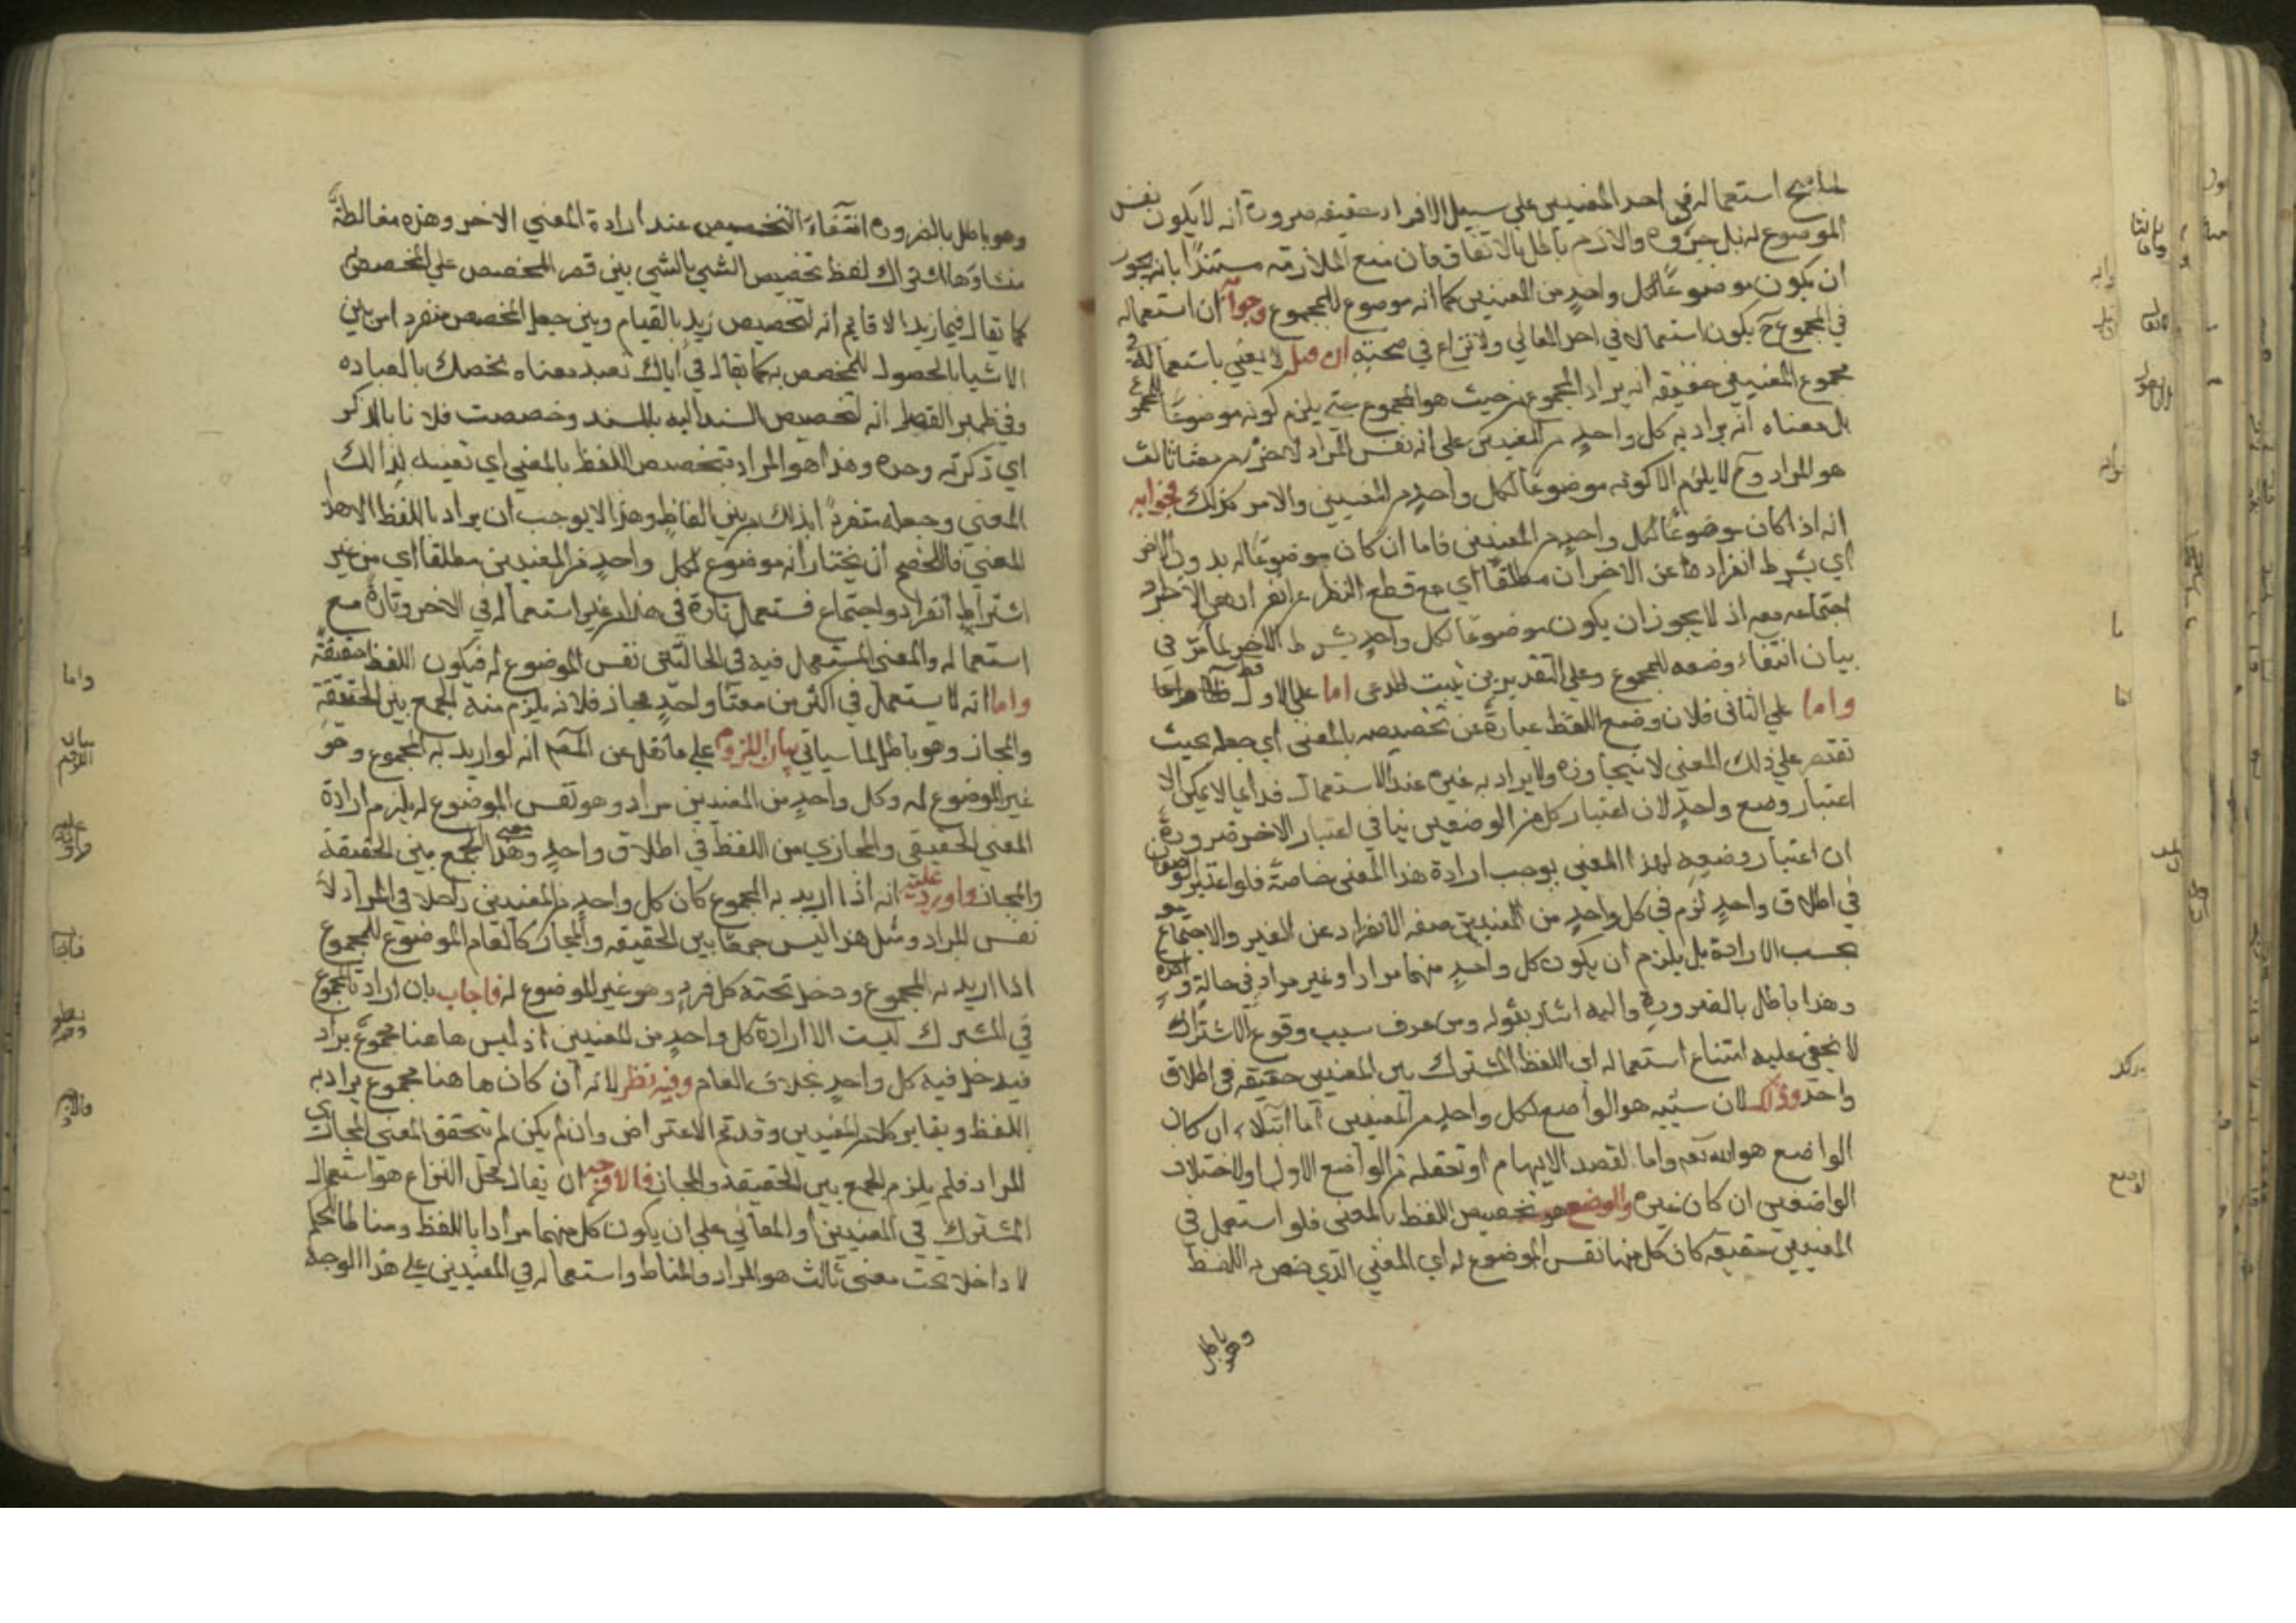 لما صح استعماله في احد المعنيين علي سبيل الافراد حقيقه ضرورة انه لا يكون نفس
الموضوع له بل جزؤه والازم باطل بالاتفاق فان منع الملازمه مستندا بانه يجوز
ان يكون موضوعا لكل واحدٍ من المعنيين كما انه موضوع للمجموع وجوابه ان استعماله
في المجموع ح يكون استعمالا في احد المعاني ولا نزاع في صحتهِ ان قيل لا يعني باستعماله في
مجموع المعنيين حقيقه انه يراد المجموع من حيث هو المجموع حتي يلزم كونه موضوعًا للمجموع
بل معناه انه يراد به كل واحدٍ من المعنيين علي انه نفس المراد لا جزء من معنا ثالث
هو المراد وح لا يلزم الا كونه موضوعًا لكل واحدٍ من المعنيين والامر كذلك فجوابه
انه اذا كان موضوعًا لكل واحدٍ من المعنيين فاما ان كان موضوعًا له بدون الاخر
اي بشرط انفراده عن الاخر ان مطلقًا اي مع قطع النظر عن انفراده عن الاخر
اجتماعه معه اذ لا يجوز ان يكون موضوعًا لكل واحدٍ بشرط الاخر لما مر في
بيان انتفاء وضعه للمجموع وعلي التقديرين يثبت المدعي اما علي الاول فظاهر
واما علي الثاني فلان وضع اللفظ عبارةٌ عن تخصيصه بالمعني اي جعله بحيث
تقتصر علي ذلك المعني لا يتجاوزه ولا يراد به غيره عند الاستعمال فدايما لا يمكن الا
اعتبار وضع واحدٍ لان اعتبار كل من الوضعين ينافي اعتبار الاخر ضرورة
ان اعتبار وضعهِ لهذا المعني يوجب ارادة هذا المعني خاصةً فلو اعتبر الوضعان
في اطلاق واحدٍ لزم في كل واحدٍ من المعنيين صفه الانفراد عن الغير والاجتماع
بحسب الارادة بل يلزم ان يكون كل واحدٍ منهما مرادا وغير مرادٍ في حالةٍ واحدة
وهذا باطل بالضرورةِ واليه اشار بقوله ومن عرف سبب وقوع الاشتراك
لا يخفي عليه امتناع استعماله اي اللفظ المشترك بين المعنيين حقيقه في اطلاق
واحد وذلك لان سببه هو الواضع لكل واحدٍ من المعنيين اما ابتلاء ان كان
الواضع هو الله تعه واما لقصد الابهام او تحفله من الواضع الاول او لاختلاف
الواضعين ان كان غيره والوضع هو تخصيص اللفظ بالمعني فلو استعمل في
المعنيين حقيقه كان كل منهما نفس الموضوع له اي المعني الذي خص به اللفظ
وهو باطل
وهو باطل بالضروره انتفاء التخصيص عند ارادة المعني الاخر وهذه مغالطةٌ
منشاؤها اشتراك لفظ تخصيص الشي بالشي بين قصر المخصص علي المخصص به
كما يقال في ما زيد الا قايم انه لتخصيص زيدٍ بالقيام وبين جعل المخصص منفردا من بين
الاشيا بالحصول للمخصص به كما يقال في اياك نعبد معناه نخصك بالعباده
وفي ضمير الفصل انه لتخصيص المسند اليه بالمسند وخصصت فلانا بالذكر
اي ذكرته وحده وهذا هو المراد بتخصيص اللفظ بالمعني اي تعيينه لذالك
المعني وجعله منفردًا بذلك من بين الفاظٍ وهذا لا يوجب ان يراد باللفظ الا هذا
المعني فللخصم ان يختار انه موضوع لكل واحدٍ من المعنيين مطلقا اي من غير
اشتراط انفرادٍ واجتماع فتستعمل تارة في هذا من غير استعماله في الاخر وتارةً مع
استعماله والمعني المستعمل فيه في الحالتين نفس الموضوع له فيكون اللفظ حقيقةً
واما انه لا يستعمل في اكثر من معنا واحدٍ مجاز فلانه يلزم منه الجمع بين الحقيقة
والمجاز وهو باطل لما سياتي بيان اللزوم علي ما نقل عن المصم انه لو اريد به المجموع وهو
غير الموضوع له وكل واحدٍ من المعنيين مراد وهو نفس الموضوع له يلزم ارادة
المعني الحقيقي والمجازي من اللفظ في اطلاق واحدٍ وهذا معني الجمع بين الحقيقة
والمجاز واورد عليه انه اذا اريد به المجموع كان كل واحدٍ من المعنيين داخلا في المراد لا
نفس المراد ومثل هذا ليس جمعًا بين الحقيقه والمجاز كالعام الموضوع للمجموع
اذا اريد به المجموع ودخل تحته كل فردٍ وهو غير الموضوع له فاجاب بان ارادة المجموع
في المشترك ليست الا ارادة كل واحدٍ من المعنيين اذ ليس هاهنا مجموع يراد
فيدخل فيه كل واحدٍ بخلاف العام وفيه نظر لانه ان كان هاهنا مجموع يراد به
اللفظ ويغاير كلا من المعنيين وقد تم الاعتراض وان لم يكن لم يتحقق المعني المجازي
المراد فلم يلزم الجمع بين الحقيقة والمجاز فالاوجه ان يقال محل النزاع هو استعمال
المشترك في المعنيين او المعاني علي ان يكون كل منهما مرادا باللفظ ومناطا للحكم
لا داخلا تحت معني ثالث هو المراد والمناط واستعماله في المعنيين علي هذا الوجه